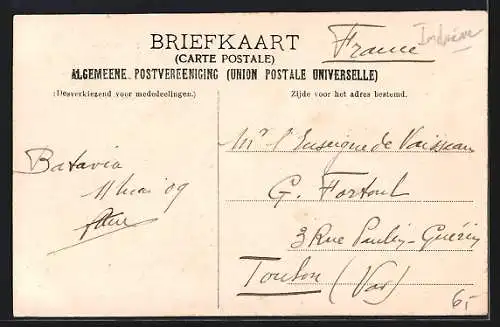 BRIEFKAART
(CARTE POSTALE)
ALGEMEENE POSTVEREENIGING (UNION POSTALE UNIVERSELLE)
France
(Desverkiezend voor mededeelingen.)
Zijde voor het adres bestemd.
Batavia
11 mai 09
Mr l'Enseigne de Vaisseau
G. Fortoul
3 Rue Paulin-Guérin
Toulon (Var)
6,-